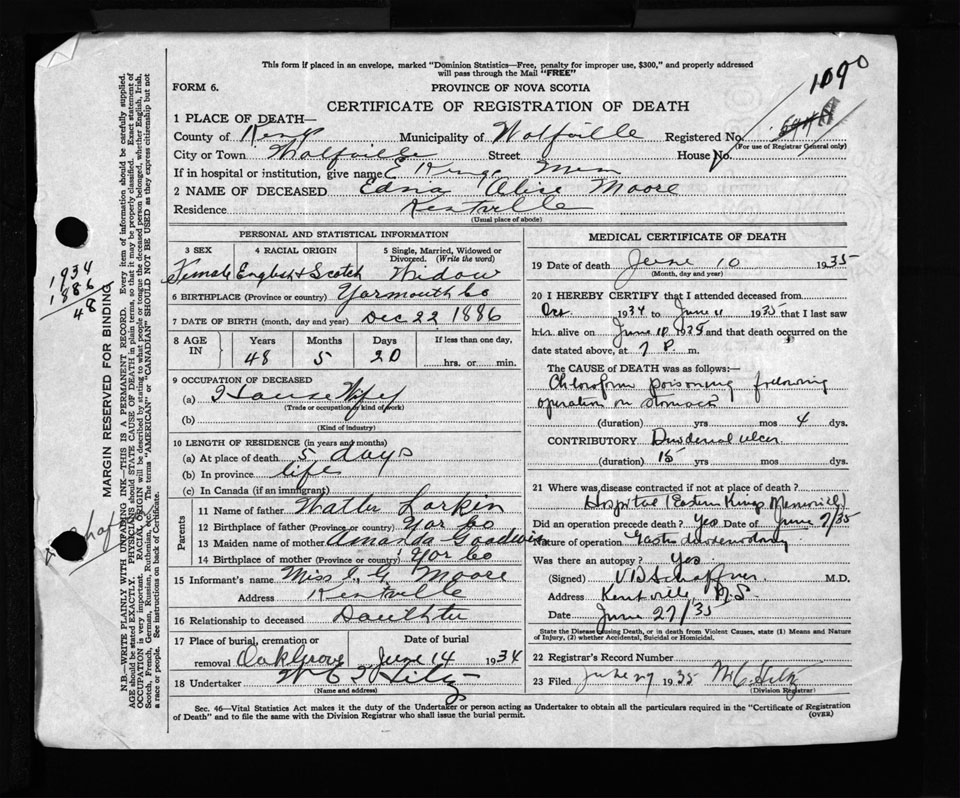 This form if placed in an envelope, marked "Dominion Statistics—Free, penalty for improper use, $300," and properly addressed
will pass through the Mail "FREE"
1090
FORM 6.
PROVINCE OF NOVA SCOTIA
CERTIFICATE OF REGISTRATION OF DEATH
1 PLACE OF DEATH—
County of Kings Municipality of Wolfville Registered No.
(For use of Registrar General only)
City or Town Wolfville Street House No.
If in hospital or institution, give name E Kings Mem
2 NAME OF DECEASED Edna Alice Moore
Residence Kentville
(Usual place of abode)
PERSONAL AND STATISTICAL INFORMATION
3 SEX 4 RACIAL ORIGIN 5 Single, Married, Widowed or Divorced. (Write the word)
Female English & Scotch Widow
6 BIRTHPLACE (Province or country) Yarmouth Co
7 DATE OF BIRTH (month, day and year) Dec 22 1886
8 AGE IN Years Months Days If less than one day,
48 5 20 hrs. or min.
9 OCCUPATION OF DECEASED
(a) House Wife
(Trade or occupation or kind of work)
(b)
(Kind of industry)
10 LENGTH OF RESIDENCE (in years and months)
(a) At place of death 5 days
(b) In province life
(c) In Canada (if an immigrant)
Parents
11 Name of father Walter Larkin
12 Birthplace of father (Province or country) Yar Co
13 Maiden name of mother Amanda Goodwin
14 Birthplace of mother (Province or country) Yar Co
15 Informant's name Miss I. G. Moore
Address Kentville
16 Relationship to deceased Daulhter
17 Place of burial, cremation or removal Date of burial
Oak Grove June 14 1934
18 Undertaker
(Name and address)
MEDICAL CERTIFICATE OF DEATH
19 Date of death June 10 1935
(Month, day and year)
20 I HEREBY CERTIFY that I attended deceased from
Oct. 1934 to June 11 1935 that I last saw
h alive on June 10 1935 and that death occurred on the
date stated above, at 7 P. m.
The CAUSE OF DEATH was as follows:—
Chloroform poisoning following
operation on stomach
(duration) yrs mos 4 dys.
CONTRIBUTORY Duodenal ulcer
(duration) 15 yrs mos dys.
21 Where was disease contracted if not at place of death?
Hospital (Eastern Kings Memorial)
Did an operation precede death? Yes Date of June 7/35
Nature of operation
Was there an autopsy? Yes
(Signed) V D Schaffner M.D.
Address Kentville, N.S.
Date June 27/35
State the Disease causing Death, or in death from Violent Causes, state (1) Means and Nature
of Injury, (2) whether Accidental, Suicidal or Homicidal.
22 Registrar's Record Number
23 Filed June 27 1935
(Division Registrar)
Sec. 46—Vital Statistics Act makes it the duty of the Undertaker or person acting as Undertaker to obtain all the particulars required in the "Certificate of Registration
of Death" and to file the same with the Division Registrar who shall issue the burial permit.
(OVER)
1934
1886
48
MARGIN RESERVED FOR BINDING
N.B.—WRITE PLAINLY WITH UNFADING INK—THIS IS A PERMANENT RECORD. Every item of information should be carefully supplied.
AGE should be stated EXACTLY. PHYSICIANS should STATE CAUSE OF DEATH in plain terms, so that it may be properly classified. Exact statement of
OCCUPATION is very important. RACIAL ORIGIN will be described by stating to what people or tongue the deceased person belonged, whether English, Irish,
Scotch, French, German, Russian, Ruthenian, etc. The terms "AMERICAN" "CANADIAN" SHOULD NOT BE USED as they express citizenship but not
a race or people. See instructions on back of Certificate.